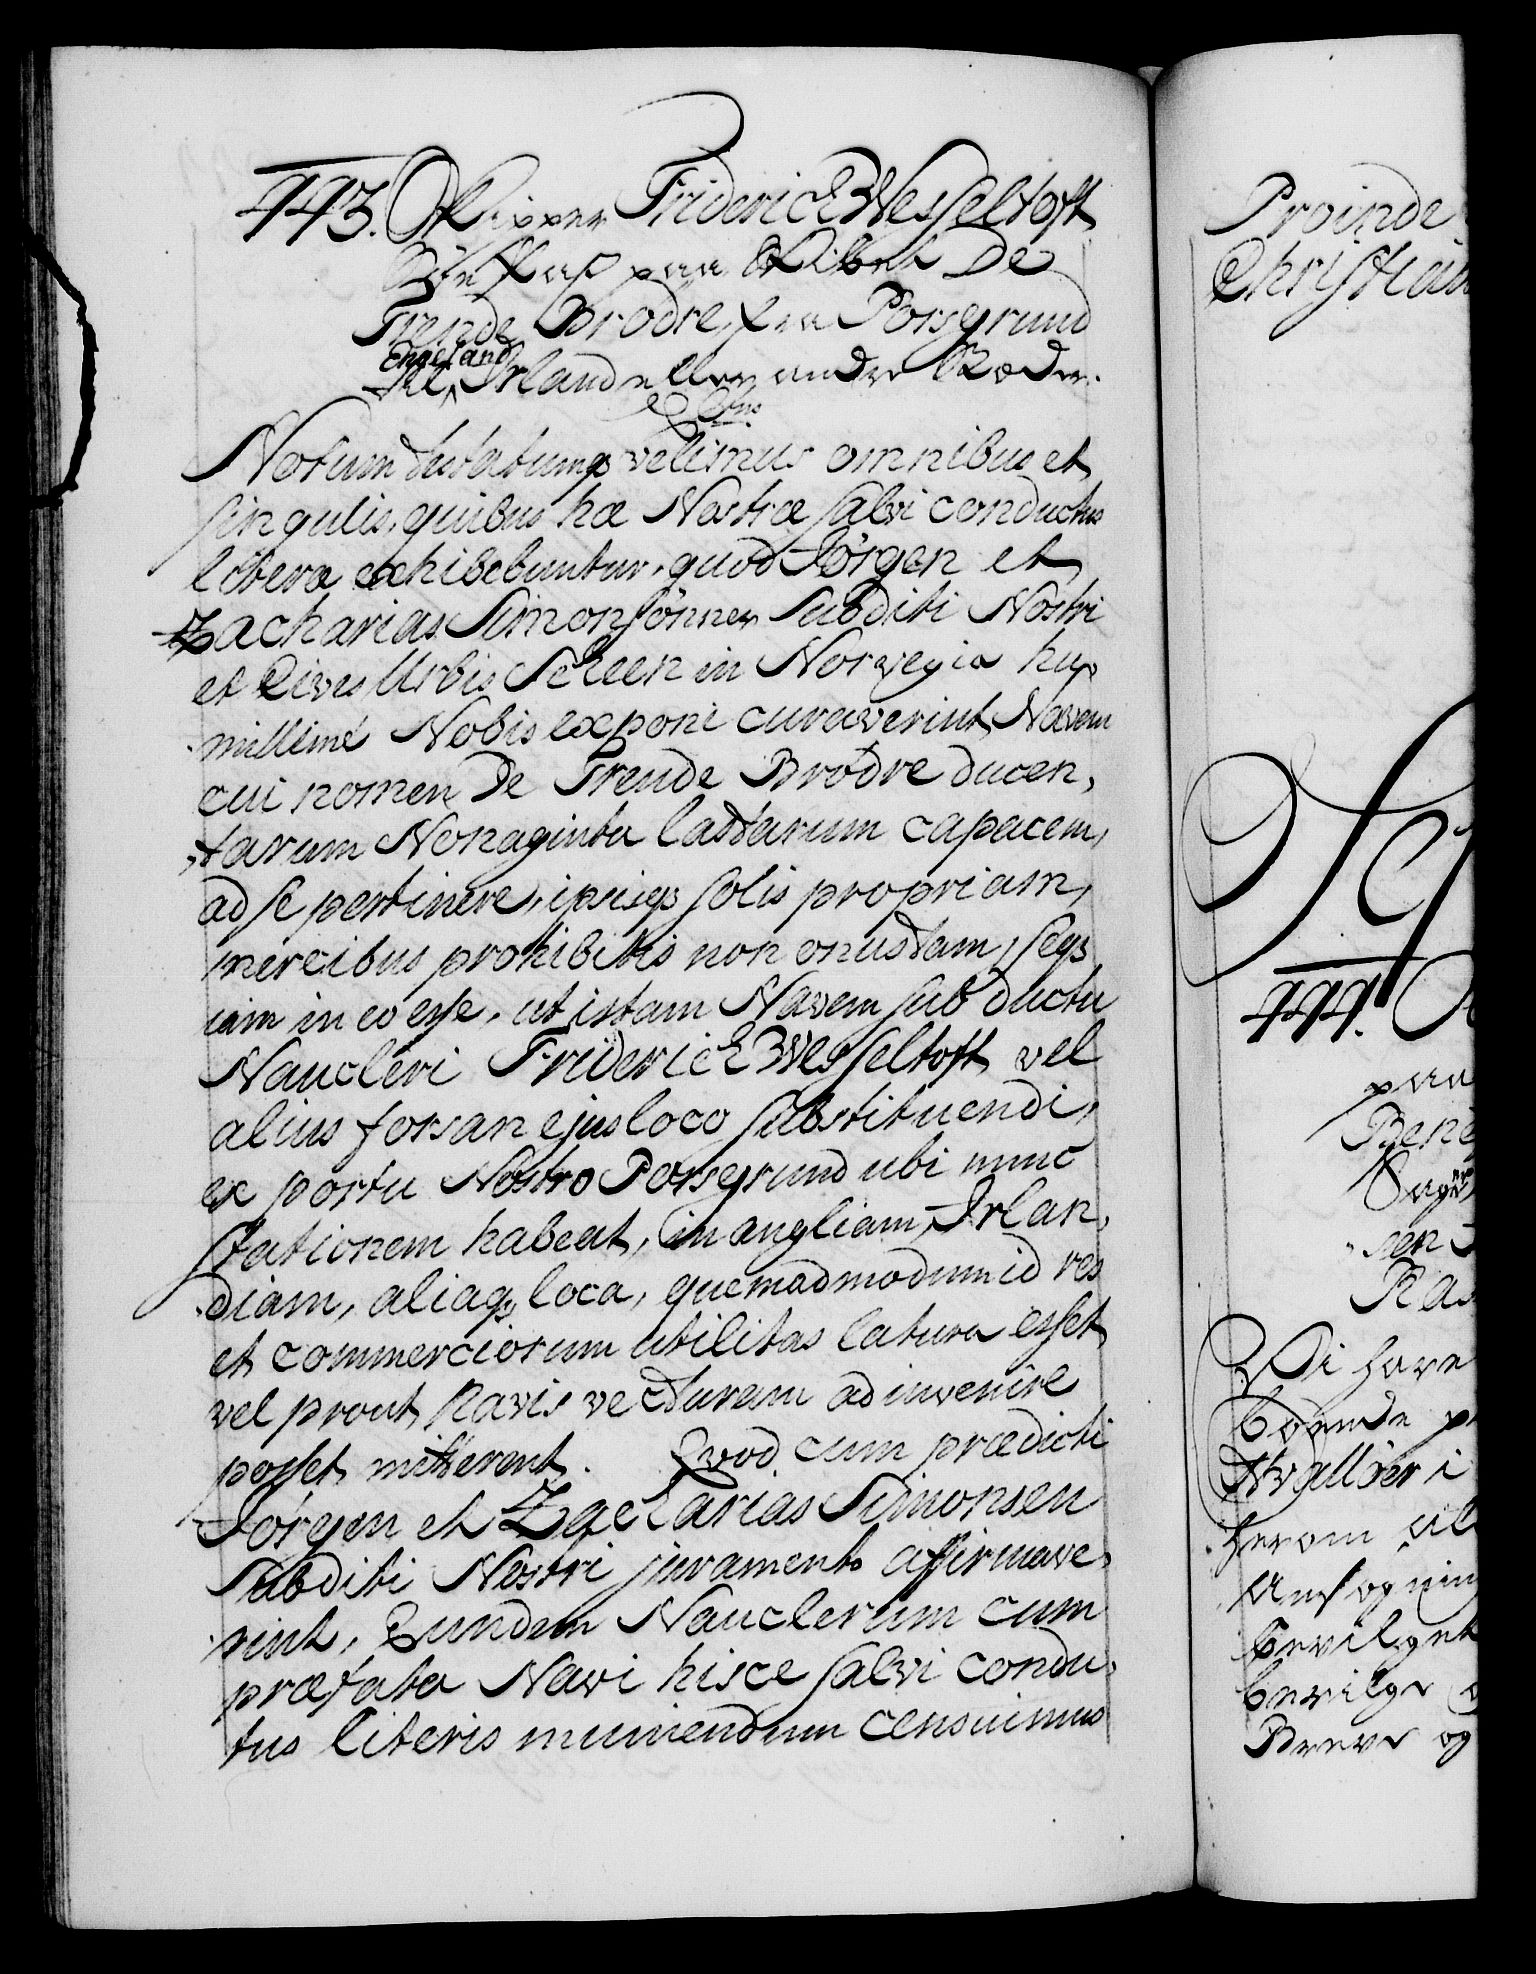 443. Skipper Friderich Wesseltoft
Søe Pas paa Skibet De
Trende Brødre, fra Porsgrund
Engeland
til Irland eller andre Stæder.
Notum testatumq velimus omnibus et
singulis, quibus hæ Nostræ salvi conductus
literæ exhibebuntur, quod Jörgen et
Zacharias Simonsönner Subditi Nostri
et Cives Urbis Scheen in Norvegia hu,
millimé Nobis exponi curaverint, Navem
cui nomen De Trende Brødre ducen,
,tarum Nonaginta lastarum capacem,
ad se pertinere, ipsisq solis propriam,
mercibus prohibitis non onustam, seqs
iam in eo esse, ut istam Navem sub ductu
Naucleri Friderich Wesseltoft vel
alius forsan ejus loco substituendi,
ex portu Nostro Porsgrund ubi nunc
stationem habeat, in angliam, Irlan,
,diam, aliaq loca, quemadmodum id res
et commerciorum utilitas latura esset
vel prout Navis vecturam ad invenire
posset, mitterent. Qvod cum prædicti
Jörgen et Zacharias Simonsen
Subditi Nostri juramento affirmave,
,rint, Eundem Nauclerum cum
præfata Navi hisce salvi condu,
tus literis muniendum censuimus
Proinde
Christian
444.
paa
Sen
Ras
Vi have
boende p
i
herom al
Ansøgning
bevilget
bevilge
Brev og